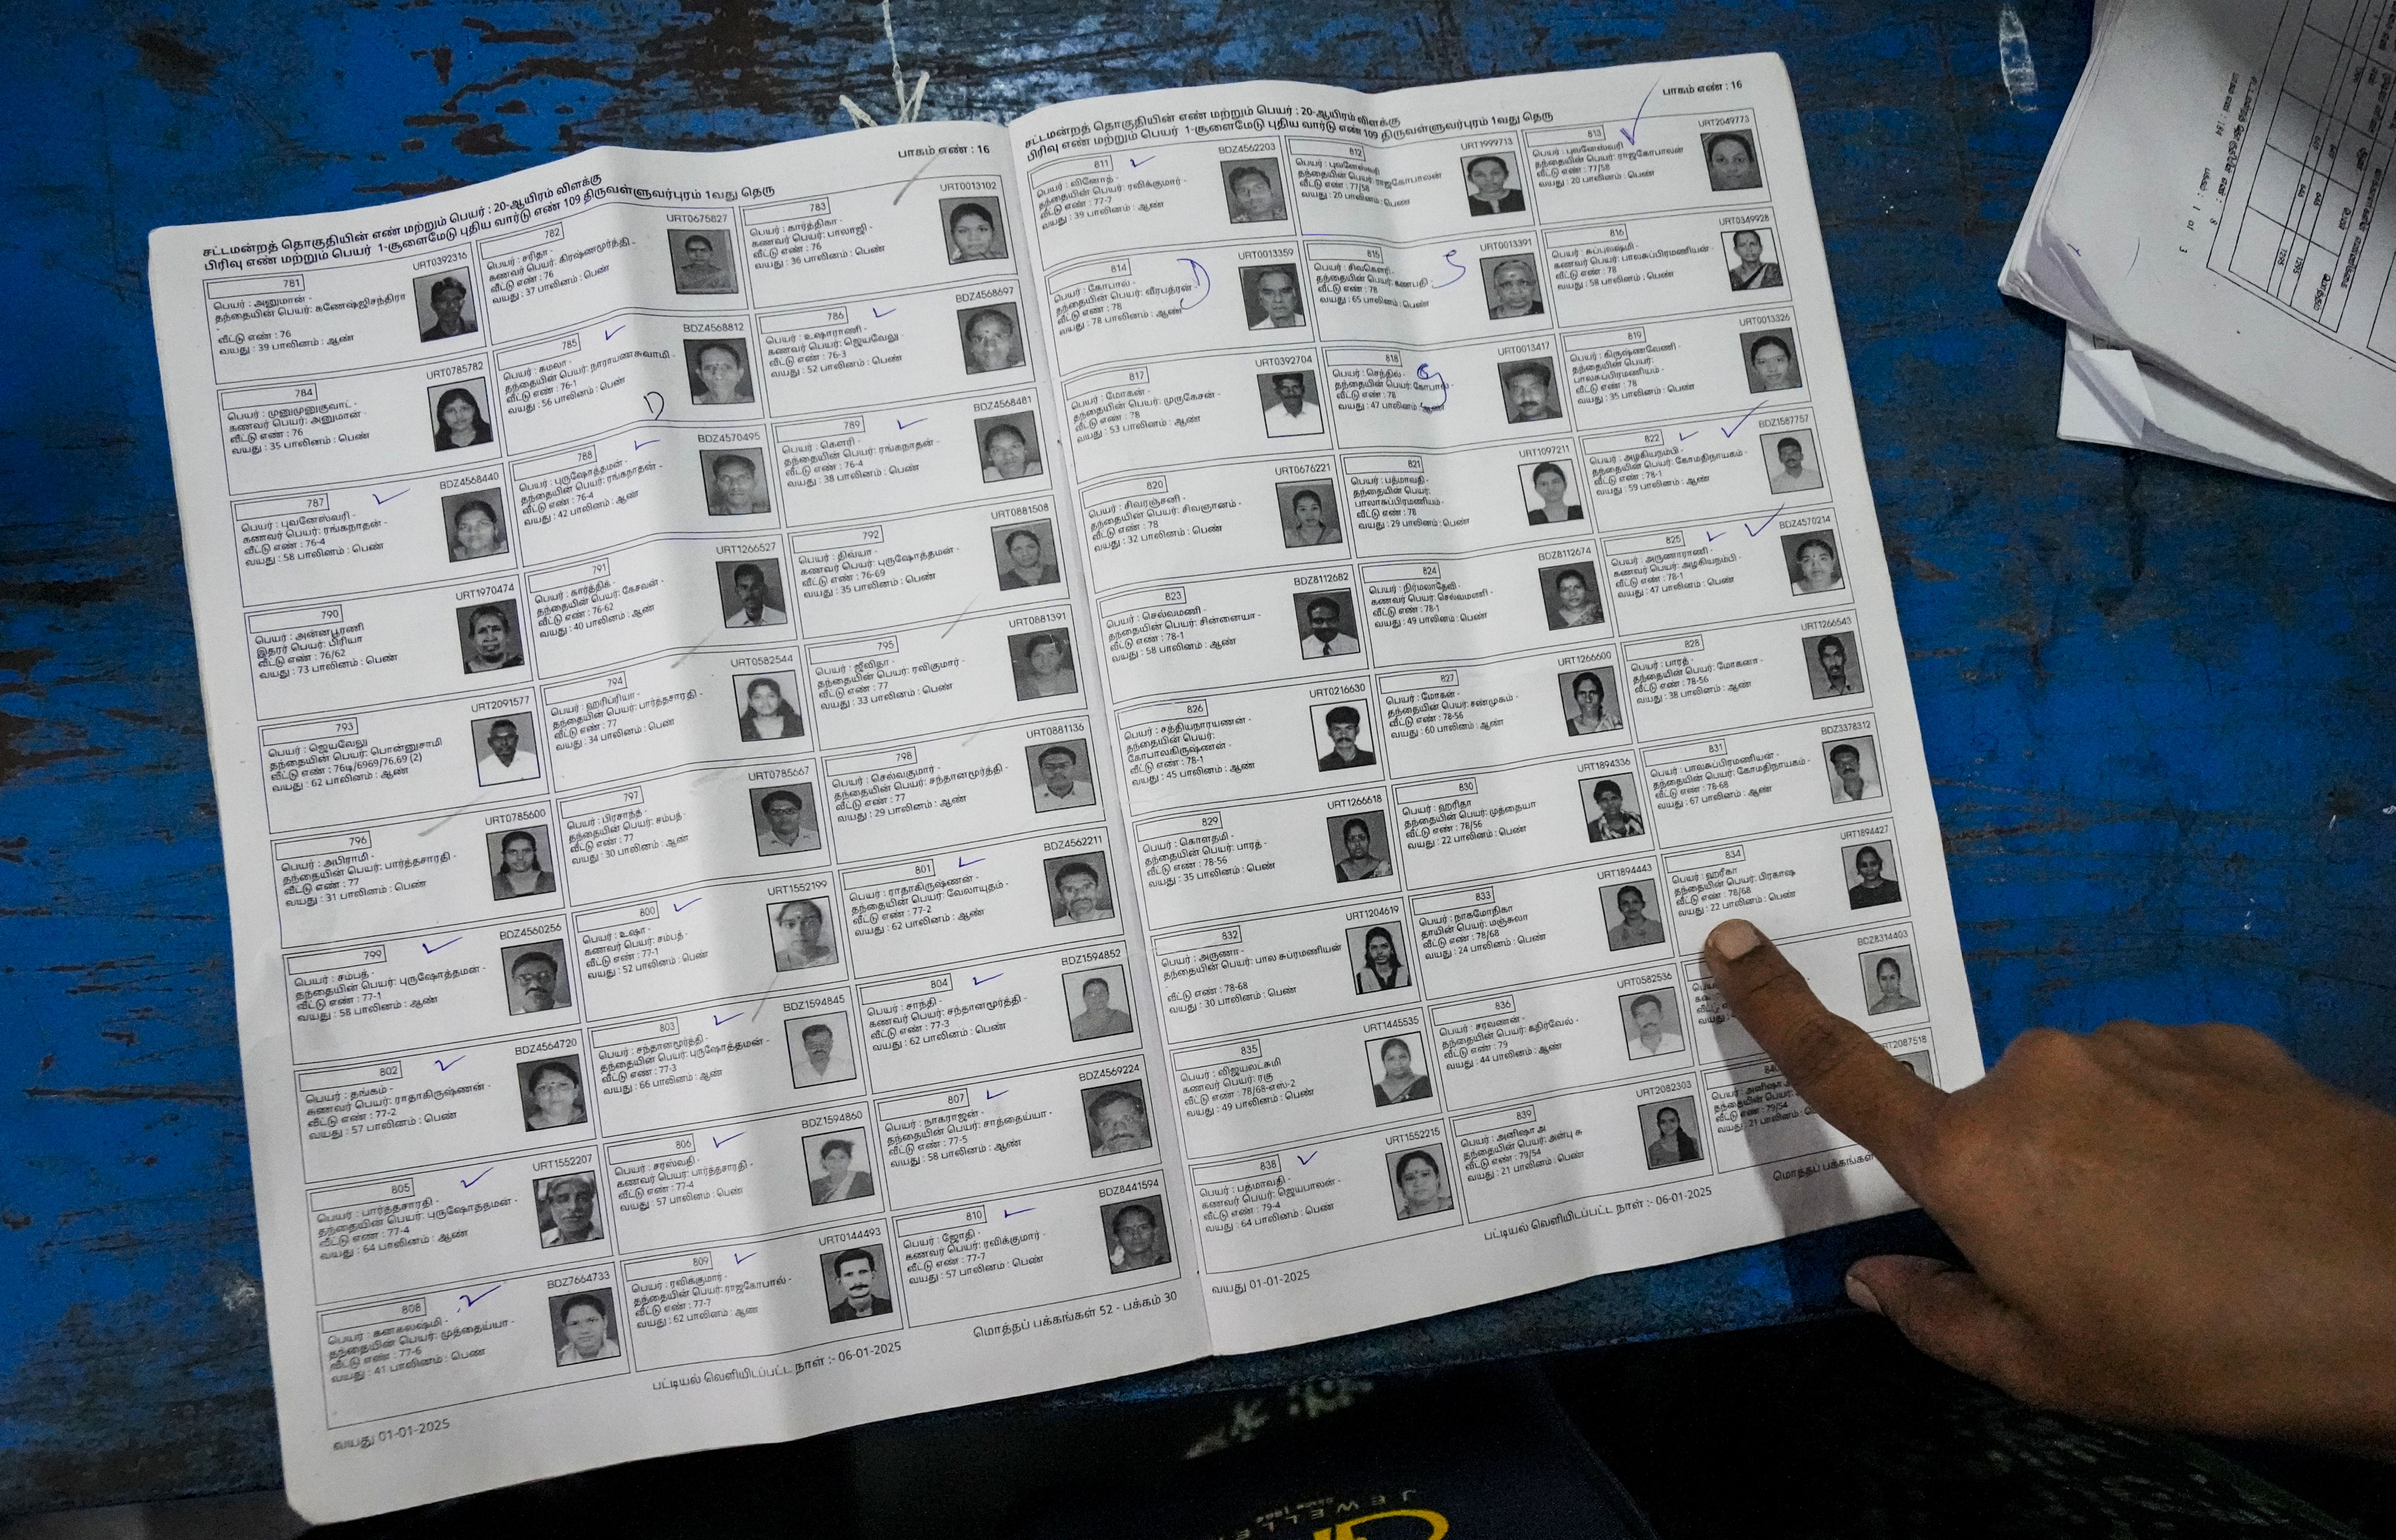 பாகம் எண் : 16
சட்டமன்றத் தொகுதியின் எண் மற்றும் பெயர் : 20-ஆயிரம் விளக்கு
பிரிவு எண் மற்றும் பெயர் 1-சூளைமேடு புதிய வார்டு எண் 109 திருவள்ளுவர்புரம் 1வது தெரு
781
URT0392316
பெயர் : அனுமான் -
தந்தையின் பெயர்: கணேஷ்ஜிசந்திரா
-
வீட்டு எண் : 76
வயது : 39 பாலினம் : ஆண்
782
URT0675827
பெயர் : சரிதா -
கணவர் பெயர்: கிரஷ்ணமூர்த்தி -
வீட்டு எண் : 76
வயது : 37 பாலினம் : பெண்
783
URT0013102
பெயர் : கார்த்திகா -
கணவர் பெயர்: பாலாஜி -
வீட்டு எண் : 76
வயது : 36 பாலினம் : பெண்
784
URT0785782
பெயர் : முனுமுனுகுவாட் -
கணவர் பெயர்: அனுமான் -
வீட்டு எண் : 76
வயது : 35 பாலினம் : பெண்
785
BDZ4568812
பெயர் : கமலா -
தந்தையின் பெயர்: நாராயணசுவாமி -
வீட்டு எண் : 76-1
வயது : 56 பாலினம் : பெண்
D
786
BDZ4568697
பெயர் : உஷாராணி -
கணவர் பெயர்: ஜெயவேலு -
வீட்டு எண் : 76-3
வயது : 52 பாலினம் : பெண்
787
BDZ4568440
பெயர் : புவனேஸ்வரி -
கணவர் பெயர்: ரங்கநாதன் -
வீட்டு எண் : 76-4
வயது : 58 பாலினம் : பெண்
788
BDZ4570495
பெயர் : புருஷோத்தமன் -
தந்தையின் பெயர்: ரங்கநாதன் -
வீட்டு எண் : 76-4
வயது : 42 பாலினம் : ஆண்
789
BDZ4568481
பெயர் : கௌரி -
தந்தையின் பெயர்: ரங்கநாதன் -
வீட்டு எண் : 76-4
வயது : 38 பாலினம் : பெண்
790
URT1970474
பெயர் : அன்னபூரணி
இதரர் பெயர்: பிரியா
வீட்டு எண் : 76/62
வயது : 73 பாலினம் : பெண்
791
URT1266527
பெயர் : கார்த்திக் -
தந்தையின் பெயர்: கேசவன் -
வீட்டு எண் : 76-62
வயது : 40 பாலினம் : ஆண்
792
URT0881508
பெயர் : திவ்யா -
கணவர் பெயர்: புருஷோத்தமன் -
வீட்டு எண் : 76-69
வயது : 35 பாலினம் : பெண்
793
URT2091577
பெயர் : ஜெயவேலு
தந்தையின் பெயர்: பொன்னுசாமி
வீட்டு எண் : 76டி/6969/76.69 (2)
வயது : 62 பாலினம் : ஆண்
794
URT0582544
பெயர் : ஹரிப்ரியா -
தந்தையின் பெயர்: பார்த்தசாரதி -
வீட்டு எண் : 77
வயது : 34 பாலினம் : பெண்
795
URT0881391
பெயர் : ஜீவிதா -
தந்தையின் பெயர்: ரவிகுமார் -
வீட்டு எண் : 77
வயது : 33 பாலினம் : பெண்
796
URT0785600
பெயர் : அபிராமி -
தந்தையின் பெயர்: பார்த்தசாரதி -
வீட்டு எண் : 77
வயது : 31 பாலினம் : பெண்
797
URT0785667
பெயர் : பிரசாந்த் -
தந்தையின் பெயர்: சம்பத் -
வீட்டு எண் : 77
வயது : 30 பாலினம் : ஆண்
798
URT0881136
பெயர் : செல்வகுமார் -
தந்தையின் பெயர்: சந்தானமூர்த்தி -
வீட்டு எண் : 77
வயது : 29 பாலினம் : ஆண்
799
BDZ4560256
பெயர் : சம்பத் -
தந்தையின் பெயர்: புருஷோத்தமன் -
வீட்டு எண் : 77-1
வயது : 58 பாலினம் : ஆண்
800
URT1552199
பெயர் : உஷா -
கணவர் பெயர்: சம்பத் -
வீட்டு எண் : 77-1
வயது : 52 பாலினம் : பெண்
801
BDZ4562211
பெயர் : ராதாகிருஷ்ணன் -
தந்தையின் பெயர்: வேலாயுதம் -
வீட்டு எண் : 77-2
வயது : 62 பாலினம் : ஆண்
802
BDZ4564720
பெயர் : தங்கம் -
கணவர் பெயர்: ராதாகிருஷ்ணன் -
வீட்டு எண் : 77-2
வயது : 57 பாலினம் : பெண்
803
BDZ1594845
பெயர் : சந்தானமூர்த்தி -
தந்தையின் பெயர்: புருஷோத்தமன் -
வீட்டு எண் : 77-3
வயது : 66 பாலினம் : ஆண்
804
BDZ1594852
பெயர் : சாந்தி -
கணவர் பெயர்: சந்தானமூர்த்தி -
வீட்டு எண் : 77-3
வயது : 62 பாலினம் : பெண்
805
URT1552207
பெயர் : பார்த்தசாரதி -
தந்தையின் பெயர்: புருஷோத்தமன் -
வீட்டு எண் : 77-4
வயது : 64 பாலினம் : ஆண்
806
BDZ1594860
பெயர் : சரஸ்வதி -
கணவர் பெயர்: பார்த்தசாரதி -
வீட்டு எண் : 77-4
வயது : 57 பாலினம் : பெண்
807
BDZ4569224
பெயர் : நாகராஜன் -
தந்தையின் பெயர்: சாத்தைய்யா -
வீட்டு எண் : 77-5
வயது : 58 பாலினம் : ஆண்
808
BDZ7664733
பெயர் : கனகலஷ்மி -
தந்தையின் பெயர்: முத்தைய்யா -
வீட்டு எண் : 77-6
வயது : 41 பாலினம் : பெண்
809
URT0144493
பெயர் : ரவிக்குமார் -
தந்தையின் பெயர்: ராஜகோபால் -
வீட்டு எண் : 77-7
வயது : 62 பாலினம் : ஆண்
810
BDZ8441594
பெயர் : ஜோதி -
கணவர் பெயர்: ரவிக்குமார் -
வீட்டு எண் : 77-7
வயது : 57 பாலினம் : பெண்
வயது 01-01-2025
பட்டியல் வெளியிடப்பட்ட நாள் :- 06-01-2025
மொத்தப் பக்கங்கள் 52 - பக்கம் 30
பாகம் எண் : 16
சட்டமன்றத் தொகுதியின் எண் மற்றும் பெயர் : 20-ஆயிரம் விளக்கு
பிரிவு எண் மற்றும் பெயர் 1-சூளைமேடு புதிய வார்டு எண் 109 திருவள்ளுவர்புரம் 1வது தெரு
811
BDZ4562203
பெயர் : வினோத் -
தந்தையின் பெயர்: ரவிக்குமார் -
வீட்டு எண் : 77-7
வயது : 39 பாலினம் : ஆண்
812
URT1999713
பெயர் : புவனேஸ்வரி
தந்தையின் பெயர்: ராஜகோபாலன்
வீட்டு எண் : 77/58
வயது : 20 பாலினம் : பெண்
813
URT2049773
பெயர் : புவனேஸ்வரி
தந்தையின் பெயர்: ராஜகோபாலன்
வீட்டு எண் : 77/58
வயது : 20 பாலினம் : பெண்
814
URT0013359
பெயர் : கோபால் -
தந்தையின் பெயர்: வீரபத்ரன் -
வீட்டு எண் : 78
வயது : 78 பாலினம் : ஆண்
D
815
URT0013391
பெயர் : சிவகௌரி -
தந்தையின் பெயர்: கணபதி -
வீட்டு எண் : 78
வயது : 65 பாலினம் : பெண்
S
816
URT0349928
பெயர் : சுப்புலஷ்மி -
கணவர் பெயர்: பாலசுப்பிரமணியன் -
வீட்டு எண் : 78
வயது : 58 பாலினம் : பெண்
817
URT0392704
பெயர் : மோகன் -
தந்தையின் பெயர்: முருகேசன் -
வீட்டு எண் : 78
வயது : 53 பாலினம் : ஆண்
818
URT0013417
பெயர் : செந்தில் -
தந்தையின் பெயர்: கோபால் -
வீட்டு எண் : 78
வயது : 47 பாலினம் : ஆண்
819
URT0013326
பெயர் : கிருஷ்ணவேணி -
தந்தையின் பெயர்:
பாலசுப்பிரமணியம் -
வீட்டு எண் : 78
வயது : 35 பாலினம் : பெண்
820
URT0676221
பெயர் : சிவரஞ்சனி -
தந்தையின் பெயர்: சிவஞானம் -
வீட்டு எண் : 78
வயது : 32 பாலினம் : பெண்
821
URT1097211
பெயர் : பத்மாவதி -
தந்தையின் பெயர்:
பாலாசுப்பிரமணியம் -
வீட்டு எண் : 78
வயது : 29 பாலினம் : பெண்
822
BDZ1587757
பெயர் : அழகியநம்பி -
தந்தையின் பெயர்: கோமதிநாயகம் -
வீட்டு எண் : 78-1
வயது : 59 பாலினம் : ஆண்
823
BDZ8112682
பெயர் : செல்வமணி -
தந்தையின் பெயர்: சின்னையா -
வீட்டு எண் : 78-1
வயது : 58 பாலினம் : ஆண்
824
BDZ8112674
பெயர் : நிர்மலாதேவி -
கணவர் பெயர்: செல்வமணி -
வீட்டு எண் : 78-1
வயது : 49 பாலினம் : பெண்
825
BDZ4570214
பெயர் : அருணாராணி -
கணவர் பெயர்: அழகியநம்பி -
வீட்டு எண் : 78-1
வயது : 47 பாலினம் : பெண்
826
URT0216630
பெயர் : சத்தியநாராயணன் -
தந்தையின் பெயர்:
கோபாலகிருஷ்ணன் -
வீட்டு எண் : 78-1
வயது : 45 பாலினம் : ஆண்
827
URT1266600
பெயர் : மோகன் -
தந்தையின் பெயர்: சண்முகம் -
வீட்டு எண் : 78-56
வயது : 60 பாலினம் : ஆண்
828
URT1266543
பெயர் : பாரத் -
தந்தையின் பெயர்: மோகனா -
வீட்டு எண் : 78-56
வயது : 38 பாலினம் : ஆண்
829
URT1266618
பெயர் : கௌதமி -
தந்தையின் பெயர்: பாரத் -
வீட்டு எண் : 78-56
வயது : 35 பாலினம் : பெண்
830
URT1894336
பெயர் : ஹரிதா
தந்தையின் பெயர்: முத்தையா
வீட்டு எண் : 78/56
வயது : 22 பாலினம் : பெண்
831
BDZ3378312
பெயர் : பாலசுப்பிரமணியன் -
தந்தையின் பெயர்: கோமதிநாயகம் -
வீட்டு எண் : 78-68
வயது : 67 பாலினம் : ஆண்
832
URT1204619
பெயர் : அருணா -
தந்தையின் பெயர்: பால சுப்ரமணியன்
-
வீட்டு எண் : 78-68
வயது : 30 பாலினம் : பெண்
833
URT1894443
பெயர் : நாகமோதிகா
தாயின் பெயர்: மஞ்சுலா
வீட்டு எண் : 78/68
வயது : 24 பாலினம் : பெண்
834
URT1894427
பெயர் : ஹரீகா
தந்தையின் பெயர்: பிரகாஷ்
வீட்டு எண் : 78/68
வயது : 22 பாலினம் : பெண்
835
URT1445535
பெயர் : விஜயலட்சுமி
கணவர் பெயர்: ரகு
வீட்டு எண் : 78/68-எஸ்-2
வயது : 49 பாலினம் : பெண்
836
URT0582536
பெயர் : சரவணன் -
தந்தையின் பெயர்: கதிர்வேல் -
வீட்டு எண் : 79
வயது : 44 பாலினம் : ஆண்
BDZ8314403
838
URT1552215
பெயர் : பத்மாவதி -
கணவர் பெயர்: ஜெயபாலன் -
வீட்டு எண் : 79-4
வயது : 64 பாலினம் : பெண்
839
URT2082303
பெயர் : அனிஷா அ
தந்தையின் பெயர்: அன்பு க
வீட்டு எண் : 79/54
வயது : 21 பாலினம் : பெண்
RT2087518
பெயர் : அனிஷா
வீட்டு எண் : 79/54
வயது : 21 பாலினம்
வயது 01-01-2025
பட்டியல் வெளியிடப்பட்ட நாள் :- 06-01-2025
மொத்தப் பக்கங்கள்
JEWELLE